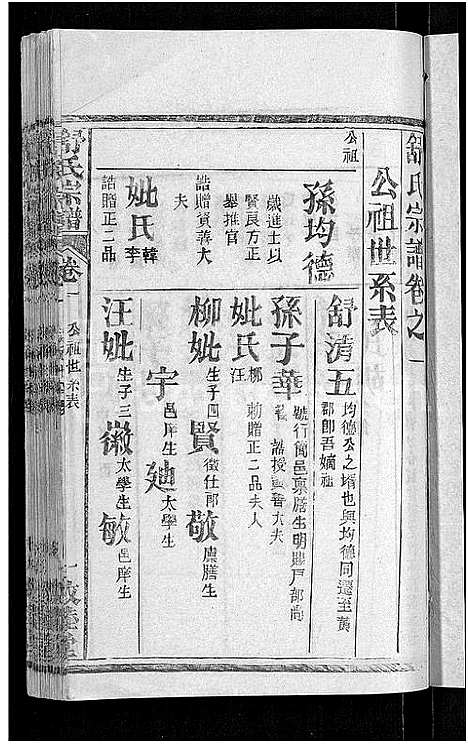 舒氏宗譜卷之一
公祖世系表
公祖
孫均德
歲進士以
賢良方正
舉推官
誥贈資善大
夫
妣氏
韓
李
誥贈正二品
舒清五
均德公之壻也與均德同遷至黃
郡即吾嫡祖
孫子華
號行簡邑禀膳生明賜戶部尚
誥授資善大夫
妣氏
柳
汪
勅贈正二品夫人
柳妣
生子四
賢
徵仕郎
敬
廩膳生
宇
邑庠生
廸
太學生
汪妣
生子三
徽
太學生
敏
邑庠生
舒氏宗譜
卷一
公祖世系表
一